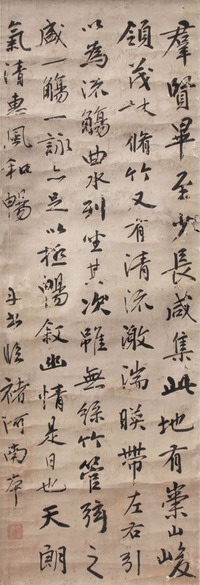 羣賢畢至少長咸集此地有崇山峻
領茂林脩竹又有清流激湍暎帶左右引
以為流觴曲水列坐其次雖無絲竹管弦之
盛一觴一詠亦足以極暢敘幽情是日也天朗
氣清惠風和暢
臨褚河南